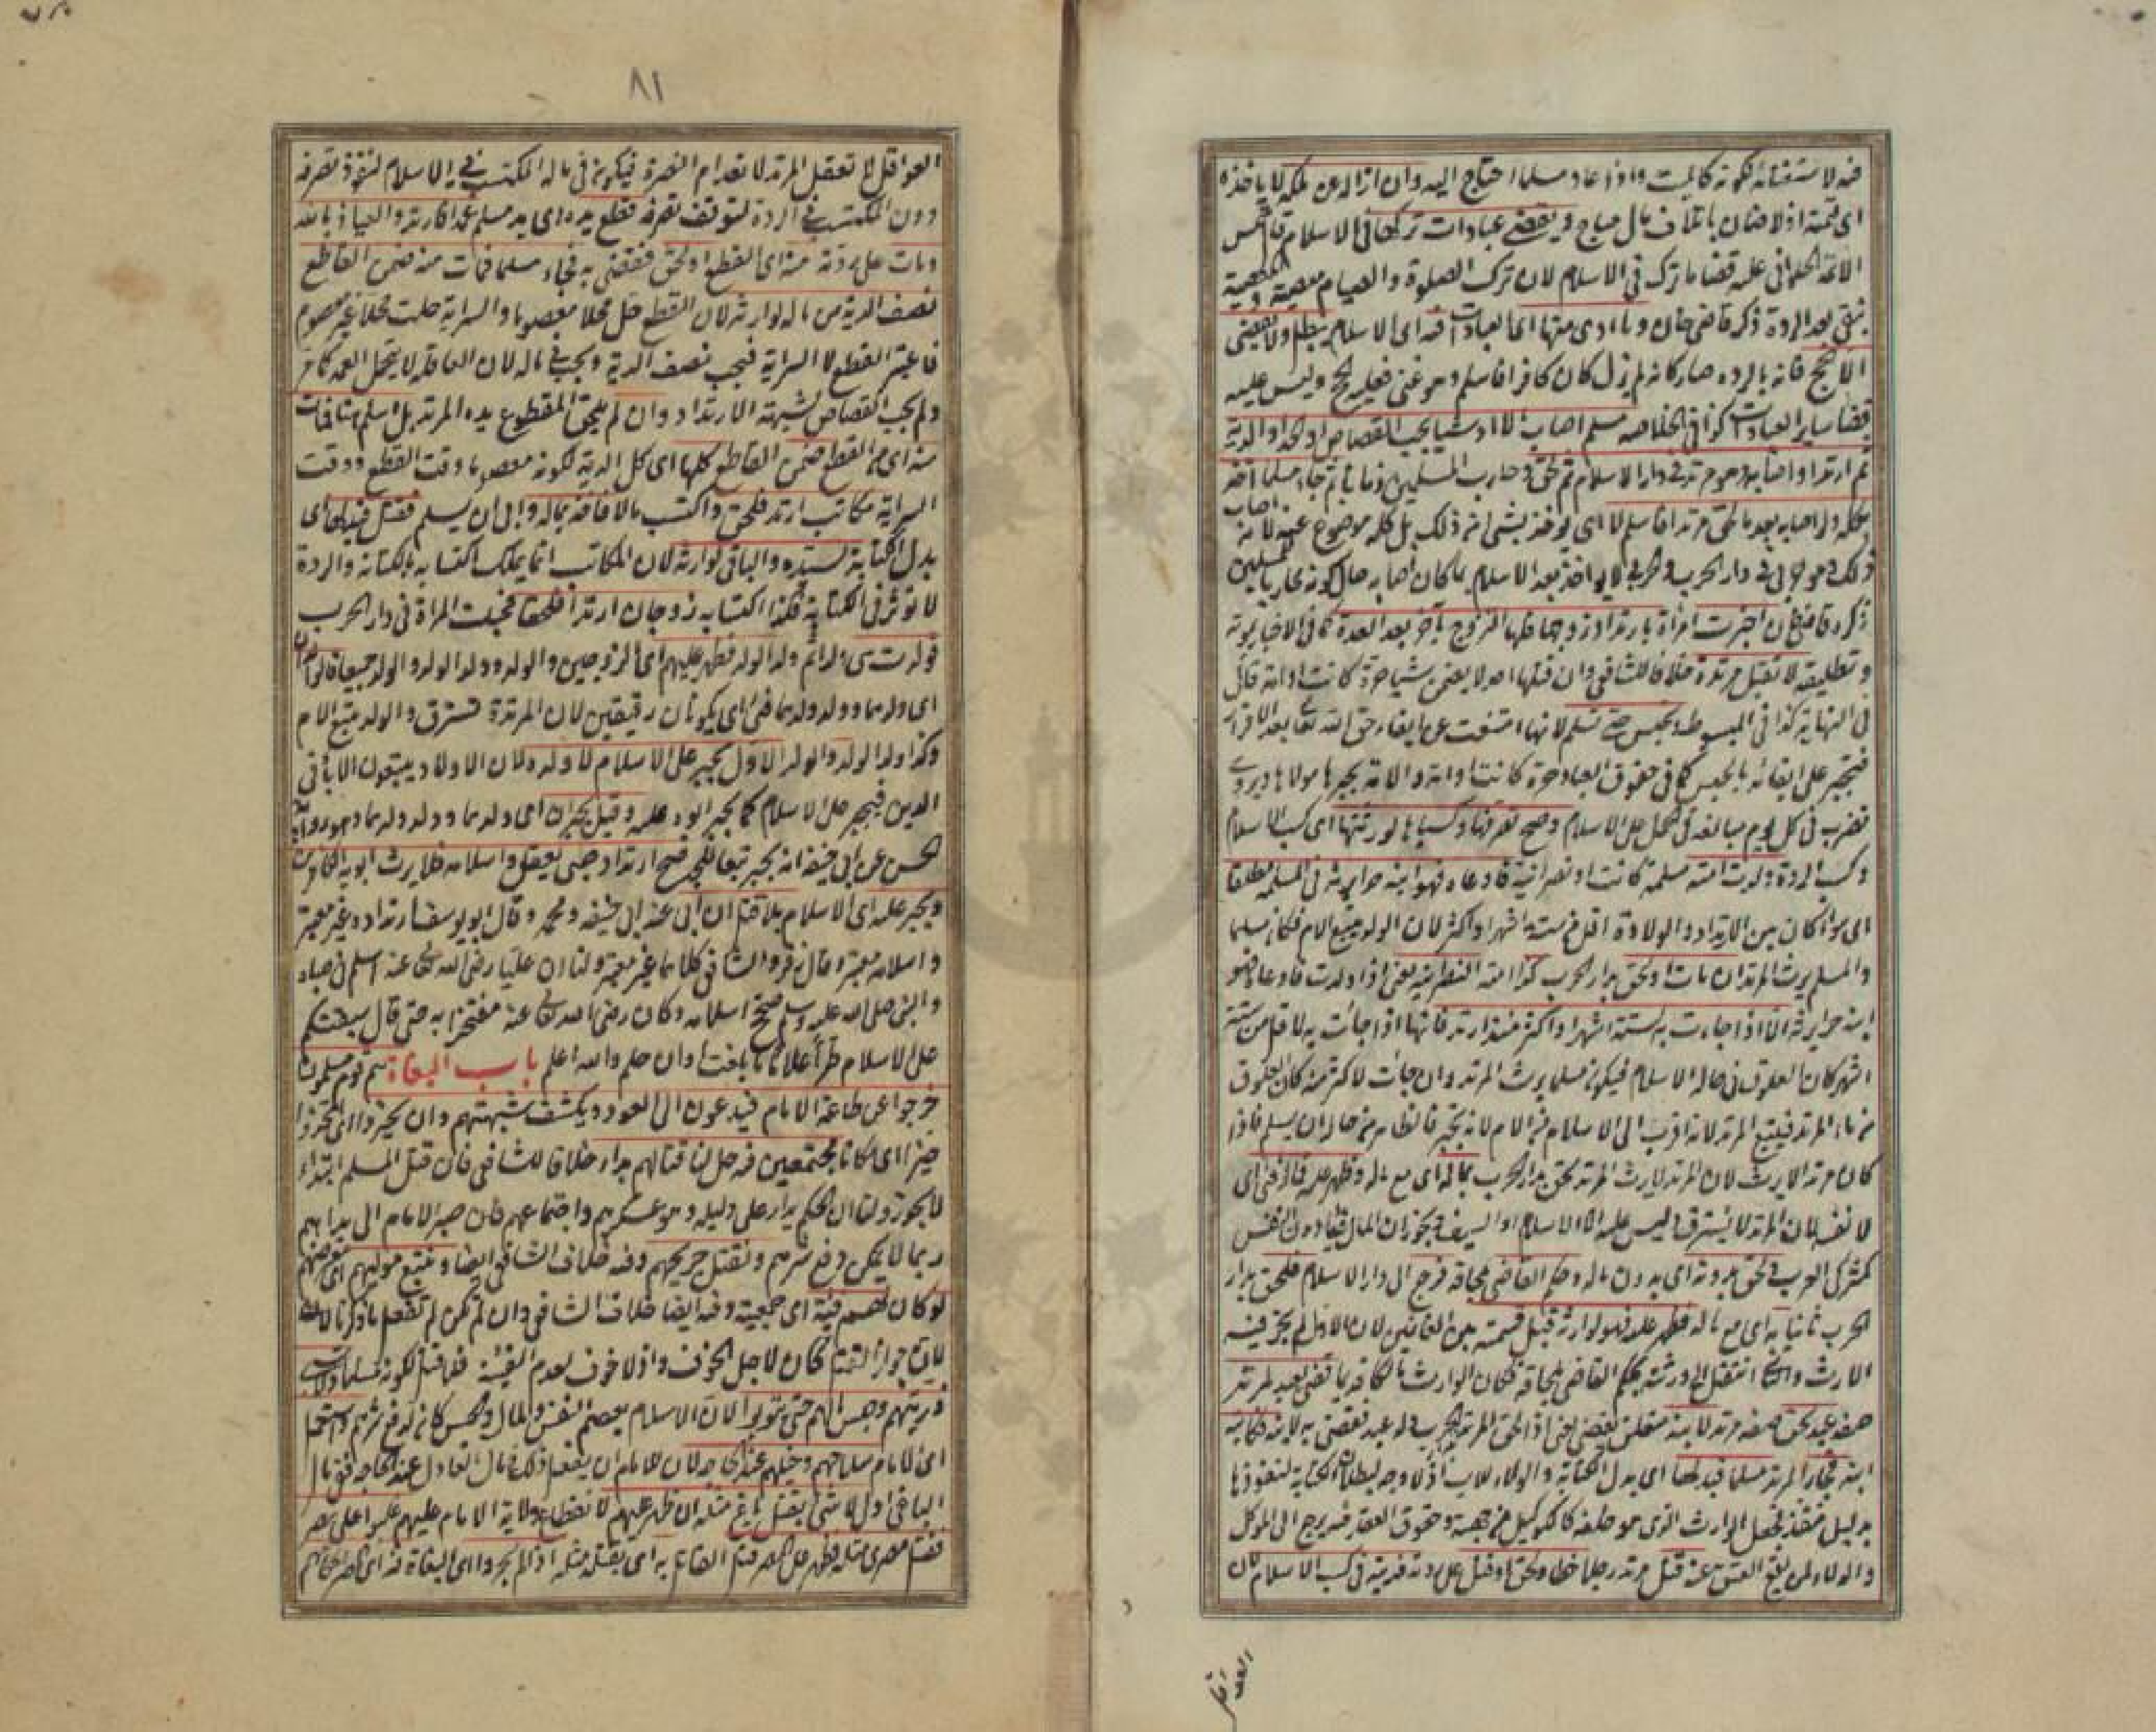 فيه لاستغنائه لكونه كالميت واذا عاد مسلما احتاج اليه وان ازاله عن ملكه لا ياخذه
اى قيمته اذ لا ضمان باتلاف مال مباح ويقضى عبادات تركها فى الاسلام قال شمس
الائمة الحلوانى عليه قضا ما ترك فى الاسلام لان ترك الصلوة والصيام معصية والمعصية
تبقى بعد الردة ذكره قاضى خان وما ادى منها اى العبادات فيه اى الاسلام يبطل ولا يقضى
الا الحج فانه بالرده صار كانه لم يزل كان كافرا فاسلم وهو غنى فعليه الحج وليس عليه
قضا ساير العبادات كذا فى الخلاصه مسلم اصاب مالا او شيا يجب القصاص او الحد او الدية
ثم ارتد او اصابه وهو مرتد فى دار الاسلام ثم لحق وحارب المسلمين زمانا ثم جاء مسلما اخذ
بكله ولو اصابه بعد ما لحق مرتدا فاسلم لا اى لا يؤخذ بشى من ذلك بل كله موضوع عنه لانه اصاب
ذلك وهو حربى فى دار الحرب والحربى لا يواخذ بعد الاسلام بما كان اصابه حال كونه محاربا للمسلمين
ذكره قاضيخان اخبرت امراة بارتداد زوجها فلها التزوج باخر بعد العدة كما فى الاخبار بموته
وتطليقه لا تقتل مرتدة خلافا للشافعى وان قتلها احد لا يضمن شيا حرة كانت او امة قال
فى النهاية كذا فى المبسوط وتحبس حتى تسلم لانها امتنعت عن ايفاء حق الله تعالى بعد الاقرار
فتجبر على ايفائه بالحبس كما فى حقوق العباد حرة كانت او امة والامة يجبرها مولاها ويروى
تضرب فى كل يوم مبالغة فى الحمل على الاسلام وصح تصرفها وكسباها لورثتها اى كسب الاسلام
وكسب الردة ولدت امته مسلمة كانت او نصرانية فادعاه فهو ابنه حرا يرثه فى المسلمة مطلقا
اى سوا كان بين الارتداد والولادة اقل من ستة اشهر او اكثر لان الولد يتبع الام فكان مسلما
والمسلم يرث المرتد ان مات او لحق بدار الحرب كذا امته النصرانية يعنى اذا ولدت فادعاه فهو
ابنه حر يرثه الا اذا جاءت به لستة اشهر او اكثر منذ ارتد فانها اذا جأت به لاقل من ستة
اشهر كان العلوق فى حالة الاسلام فيكون مسلما يرث المرتد وان جأت لاكثر منه كان العلوق
من ماء المرتد فيتبع المرتد لانه اقرب الى الاسلام من الام لانه يجبر فالظاهر من حاله ان يسلم فاذا
كان مرتدا لا يرث لان المرتد لا يرث المرتد لحق بدار الحرب بماله اى مع ماله وظهر عليه فماله فئ اى
لا نفسه لان المرتد لا يسترق وليس عليه الا الاسلام او السيف ويجوز ان المال فيئا دون النفس
كمشركى العرب لحق بدونه اى بدون ماله وحكم القاضى بلحاقه فرجع الى دار الاسلام فلحق بدار
الحرب ثانيا به اى مع ماله فظهر عليه فهو لوارثه قبل قسمته بين الغانمين لان الاول لم يجز فيه
الارث والثانى انتقل الى ورثته بحكم القاضى بلحاقه فكان الوارث مالكا قديما قضى بعبد لمرتد
ابنه فجاء المرتد مسلما فبدلها اى بدل الكتابة والولاء للاب اذ لا وجه لبطلان الكتابة لنفوذها
بدليل منفذ فجعل الوارث الذى هو خلفه كالوكيل من جهته وحقوق العقد فيه يرجع الى الموكل
والولاء لمن يقع العتق عنه قتل مرتد رجلا خطا ولحق او قتل على ردته فديته فى كسب الاسلام لان
العواقل
٨١
العواقل لا تعقل المرتد لانعدام النصرة فيكون فى ماله المكتسب فى الاسلام لنفوذ تصرفه
دون المكتسب فى الردة لتوقف تصرفه قطع يده اى يد مسلم عمدا فارتد والعياذ بالله
ومات على ردته منه اى القطع او لحق فقضى به فجاء مسلما فمات منه ضمن القاطع
نصف الدية من ماله لوارثه لان القطع حل محلا معصوما والسراية حلت محلا غير معصوم
فاعتبر القطع لا السراية فيجب نصف الدية ويجب فى ماله لان العاقلة لا يتحمل العمد كما مر
ولم يجب القصاص لشبهة الارتداد وان لم يلحق المقطوع يده المرتد بل اسلم هنا فمات
منه اى من القطع ضمن القاطع كلها اى كل الدية لكونه معصوما وقت القطع ووقت
السراية مكاتب ارتد فلحق واكتسب مالا فاخذ بماله وابى ان يسلم فقتل فبدلها اى
بدل الكتابة لسيده والباقى لوارثه لان المكاتب انما يملك اكتسابه بالكتابة والردة
لا تؤثر فى الكتابة فكذا اكتسابه زوجان ارتدا فلحقا فحبلت المراة فى دار الحرب
فولدت ثم ولد الولد فظهر عليهم اى الزوجين والولد وولد الولد جميعا فالولدان
اى ولدهما وولد ولدهما فئ اى يكونان رقيقين لان المرتدة تسترق والولد يتبع الام
وكذا ولد الولد والولد الاول يجبر على الاسلام لا ولده لان الاولاد يتبعون الاباء فى
الدين فيجبر على الاسلام كما يجبر الاب عليه وقيل يجبران اى ولدهما وولد ولدهما وهو رواية
الحسن عن ابى حنيفة انه يجبر تبعا للجد صح ارتداد صبى يعقل واسلامه فلا يرث ابويه الكافرين
ويجبر عليه اى الاسلام بلا قتل ان ابى عند ابى حنيفه ومحمد وقال ابو يوسف ارتداده غير معتبر
واسلامه معتبر وقال زفر والشافعى كلاهما غير معتبر ولنا ان عليا رضى الله تعالى عنه اسلم فى صباه
والنبى صلى الله عليه وسلم صحح اسلامه وكان رضى الله تعالى عنه مفتخرا به حتى قال سبقتكم
على الاسلام طرا غلاما ما بلغت اوان حلم والله اعلم باب البغاة هم قوم مسلمون
خرجوا عن طاعة الامام فيدعوهم الى العود ويكشف شبهتهم وان تحيزوا اى اتخذوا
حيزا اى مكانا مجتمعين فيه حل لنا قتالهم بداء خلافا للشافعى فان قتل المسلم ابتداء
لا يجوز ولنا ان الحكم يدار على دليله وهو عسكرهم واجتماعهم فان صبر الامام الى بدائهم
ربما لا يمكن دفع شرهم ونقتل جريحهم وفيه خلاف الشافعى ايضا ونتبع موليهم اى معرضهم
لو كان لهم فئة اى جمعية وفيه ايضا خلاف الشافعى وان لم تكن لم نفعل ما ذكرنا
لان جواز القتل كان لاجل الخوف واذ لا خوف لعدم الفئة فلا قتل لكونه مسلما ولا نسبى
ذريتهم وحبس مالهم حتى يتوبوا لان الاسلام يعصم النفس والمال والحبس كان لدفع شرهم واستعمل
اى الامام سلاحهم وخيلهم عند الحاجة لان للامام ان يفعل ذلك فى مال العادل عند الحاجة ففى مال
الباغى اولى لا شئ بقتل باغ مثله ان ظهر عليهم لانقطاع ولاية الامام عليهم غلبوا على مصر
فقتل مصرى مثله فظهر على المصر قتل القاتل به اى بقتله مثله اذا لم يجر